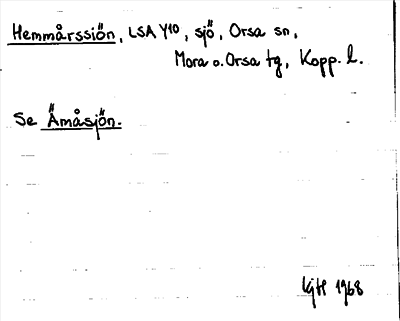 Hemmårssjön, LSA Y10, sjö, Orsa sn,
Mora o. Orsa tg, Kopp. l.
Se Ämåsjön.
1968